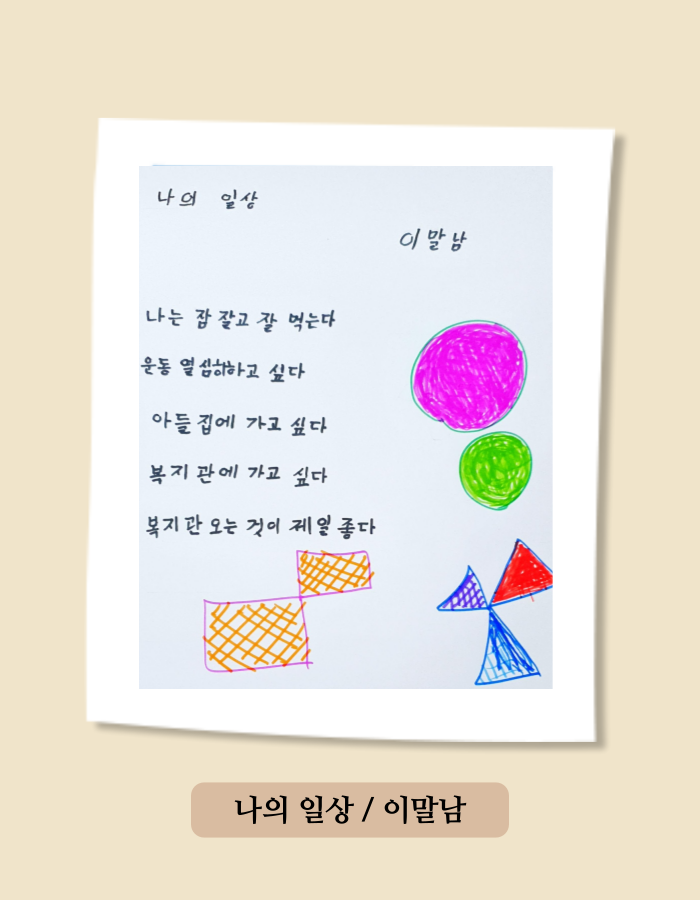 나의 일상
이말남
나는 잠 잘고 잘 먹는다
운동 열심히하고 싶다
아들 집에 가고 싶다
복지관에 가고 싶다
복지관 오는 것이 제일 좋다
나의 일상 / 이말남